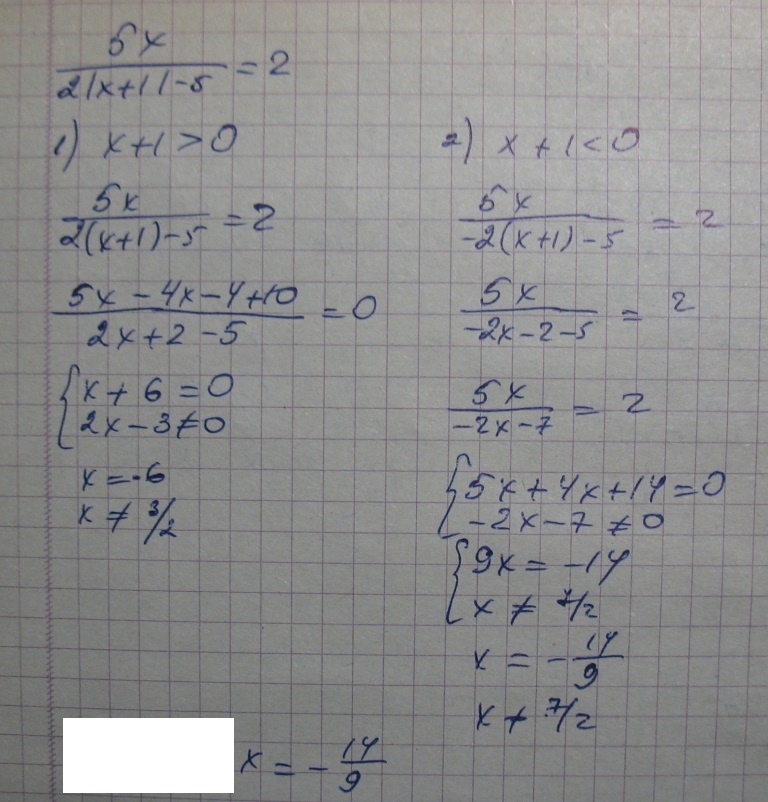 5x / (2|x+1|-5) = 2
1) x+1>0
5x / (2(x+1)-5) = 2
(5x-4x-4+10) / (2x+2-5) = 0
{ x+6=0
2x-3≠0
x=-6
x≠3/2
2) x+1<0
5x / (-2(x+1)-5) = 2
5x / (-2x-2-5) = 2
5x / (-2x-7) = 2
{ 5x+4x+14=0
-2x-7≠0
{ 9x=-14
x≠7/2
x=-14/9
x≠7/2
x=-14/9